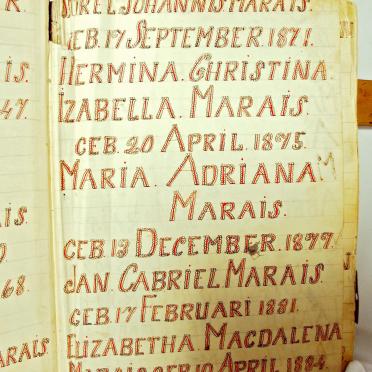 R.
IS.
47.
IS.
68.
ARAIS
JOHANNIS MARAIS.
GEB. 17 SEPTEMBER. 1871.
HERMINA. CHRISTINA.
IZABELLA. MARAIS.
GEB. 20 APRIL. 1875.
MARIA. ADRIANA. M
MARAIS.
GEB. 13 DECEMBER. 1877.
JAN. GABRIEL MARAIS.
GEB. 17 FEBRUARI 1881.
ELIZABETHA MAGDALENA
MARAIS GEB 10 APRIL 1884.